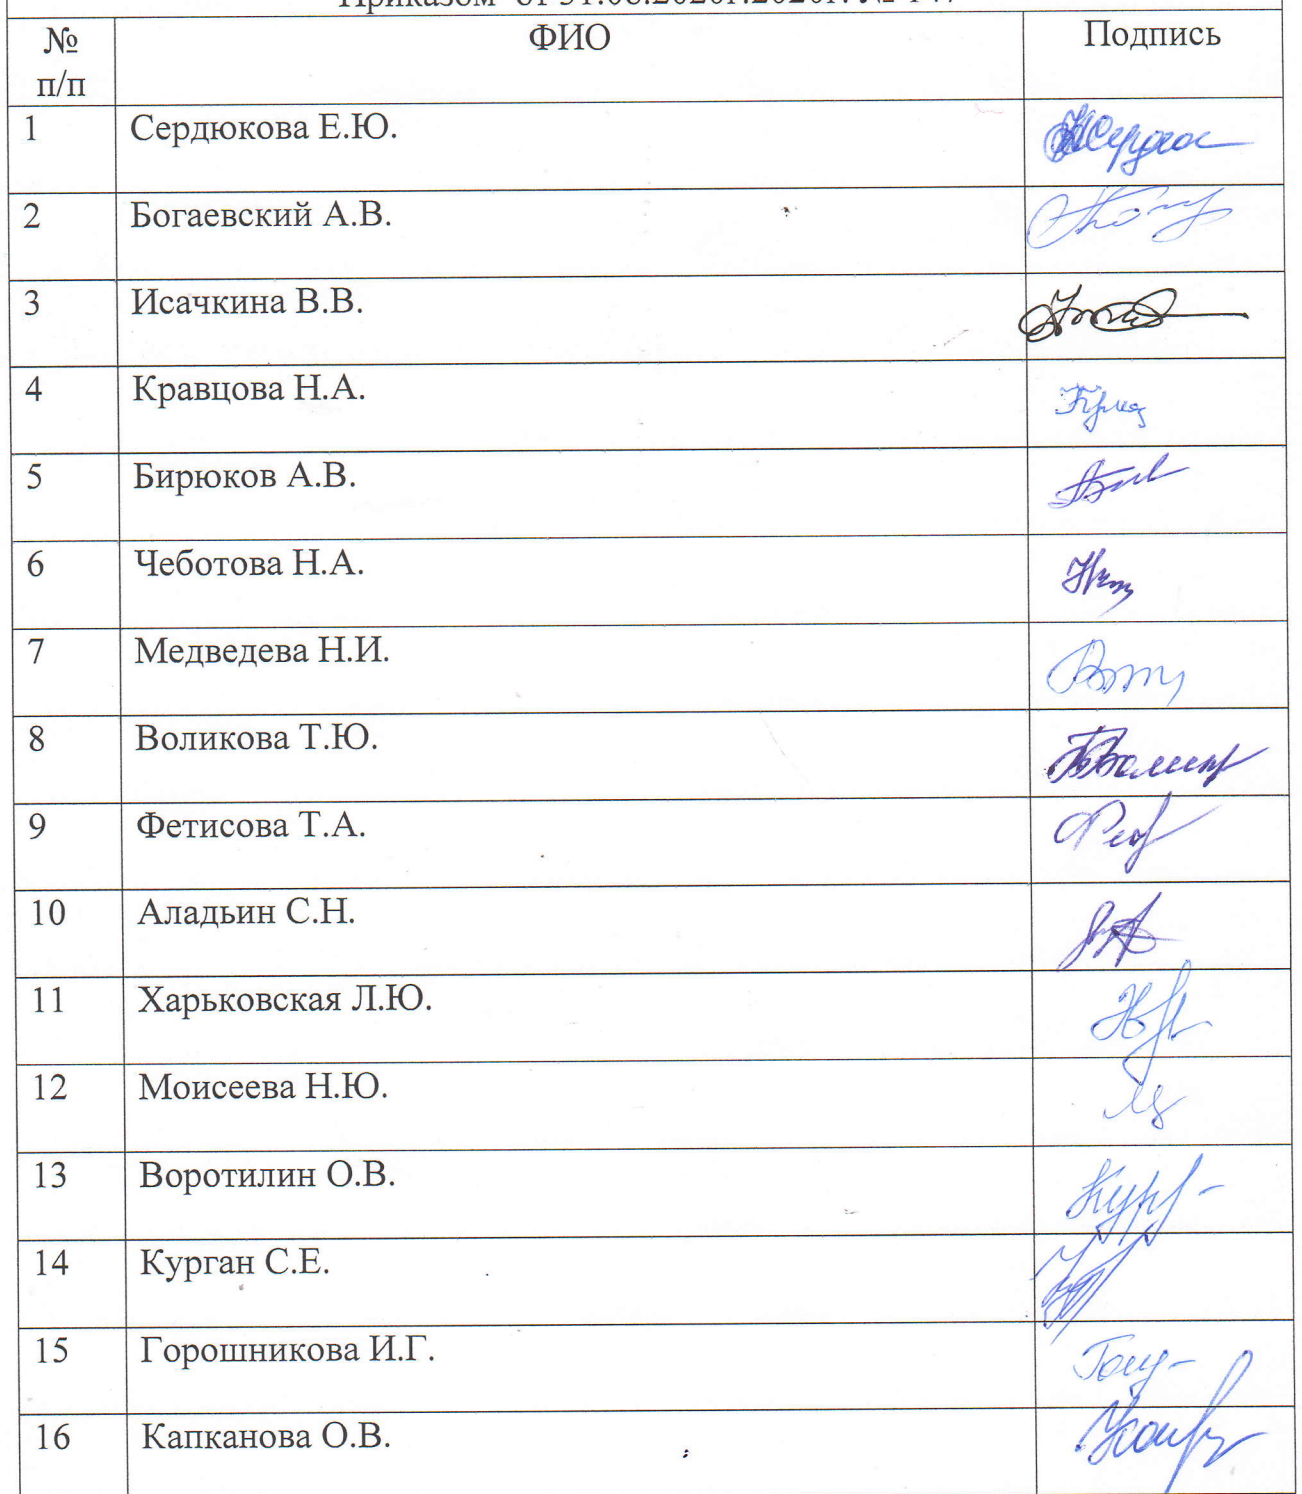 Приказом от 31.08.2020г.2020г. № 147
№ ФИО Подпись
п/п
1 Сердюкова Е.Ю.
2 Богаевский А.В.
3 Исачкина В.В.
4 Кравцова Н.А.
5 Бирюков А.В.
6 Чеботова Н.А.
7 Медведева Н.И.
8 Воликова Т.Ю.
9 Фетисова Т.А.
10 Аладьин С.Н.
11 Харьковская Л.Ю.
12 Моисеева Н.Ю.
13 Воротилин О.В.
14 Курган С.Е.
15 Горошникова И.Г.
16 Капканова О.В.